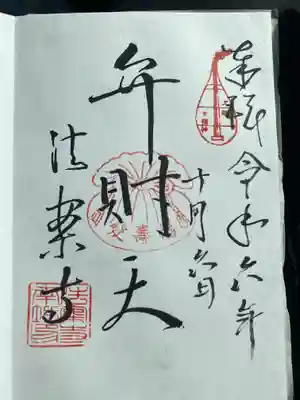 奉拝 令和六年
十月六日
弁財天
法楽寺